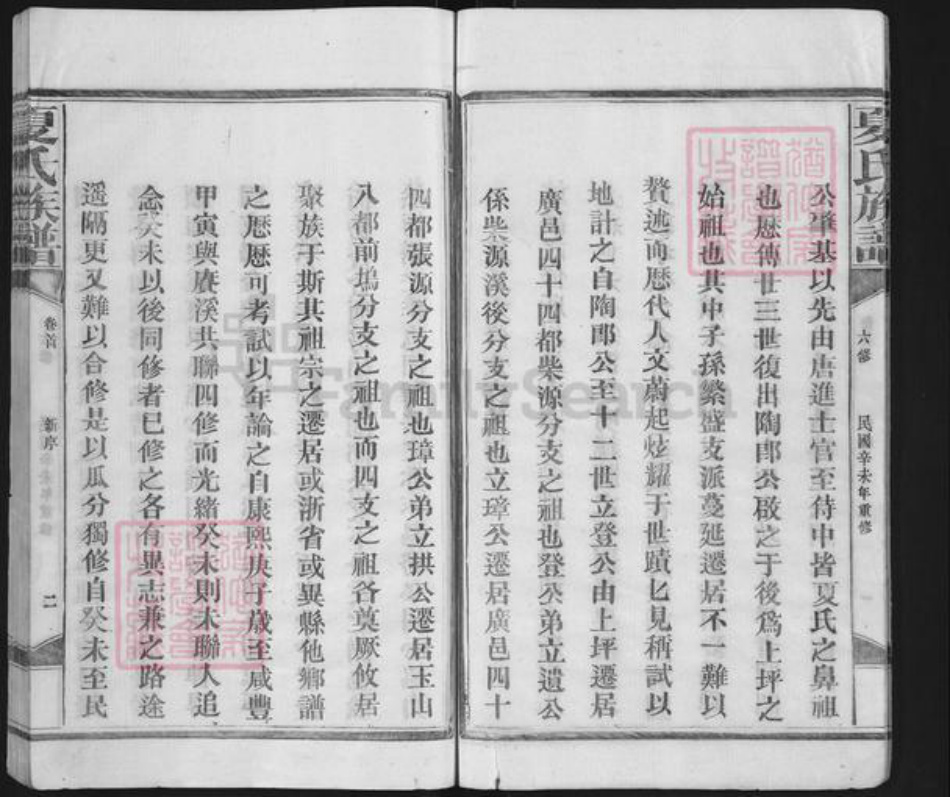 夏氏族譜
六修
民國辛未年重修
公肇基以先由唐進士官至待中皆夏氏之鼻祖
也歷傳廿三世復出陶郎公啟之于後爲上坪之
始祖也其中子孫繁盛支派蔓延遷居不一難以
贅述而歷代人文蔚起炫耀于世蹟匕見稱試以
地計之自陶郎公至十二世立登公由上坪遷居
廣邑四十四都柴源分支之祖也登公弟立遺公
係柴源溪後分支之祖也立璋公遷居廣邑四十
四都張源分支之祖也璋公弟立拱公遷居玉山
八都前塢分支之祖也而四支之祖各奠厥攸居
聚族于斯其祖宗之遷居或浙省或異縣他鄉譜
之歷歷可考試以年論之自康熙庚子歲至咸豐
甲寅與賡溪共聯四修而光緒癸未則未聯入追
念癸未以後同修者已修之各有異志兼之路途
遥隔更又難以合修是以瓜分獨修自癸未至民
夏氏族譜
卷首
新序
二
FamilySearch